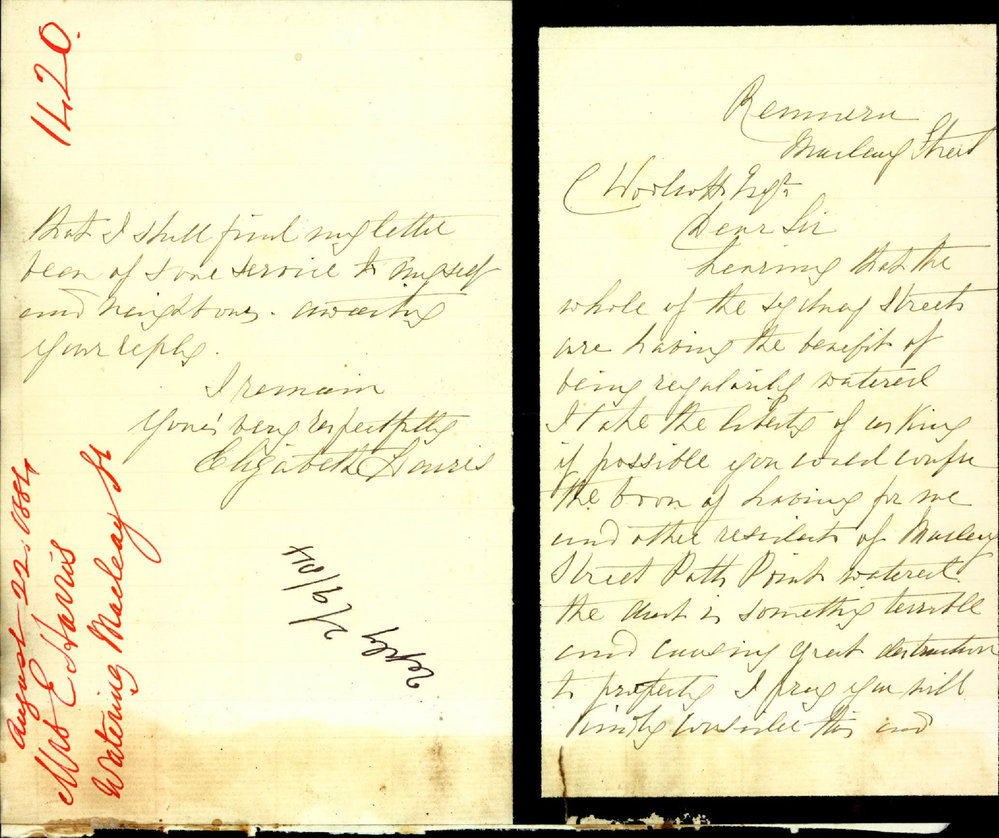 Macleay Street
C Woolcott Esqr
Dear Sir
hearing that the
whole of the Sydney Streets
are having the benefit of
being regularly watered
I take the liberty of asking
if possible you could confer
the boon of having for me
and other residents of Macleay
Street Potts Point watered
the dust is something terrible
and causing great destruction
to property I pray you will
kindly consider this and
that I shall find my letter
been of some service to myself
and neighbours. awaiting
your reply.
I remain
Yours very respectfully
Elizabeth Harris
1420.
August 22. 1884
Mrs E Harris
Watering Macleay St
reply 2/9/84